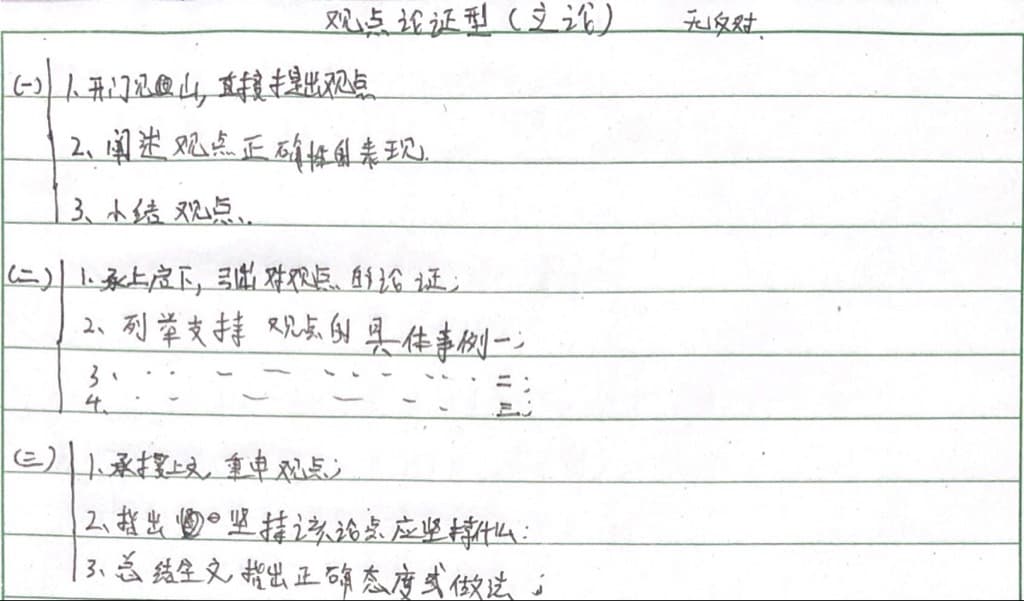 观点论证型(立论) 无反对.
(一) 1.开门见山,直接提出观点
2、阐述观点正确性的表现.
3、小结观点.
(二) 1.承上启下,引出对观点的论证;
2、列举支持观点的具体事例一;
3、 二;
4. 三;
(三) 1.承接上文,重申观点;
2、指出坚持该论点应坚持什么:
3、总结全文,指出正确态度或做法;